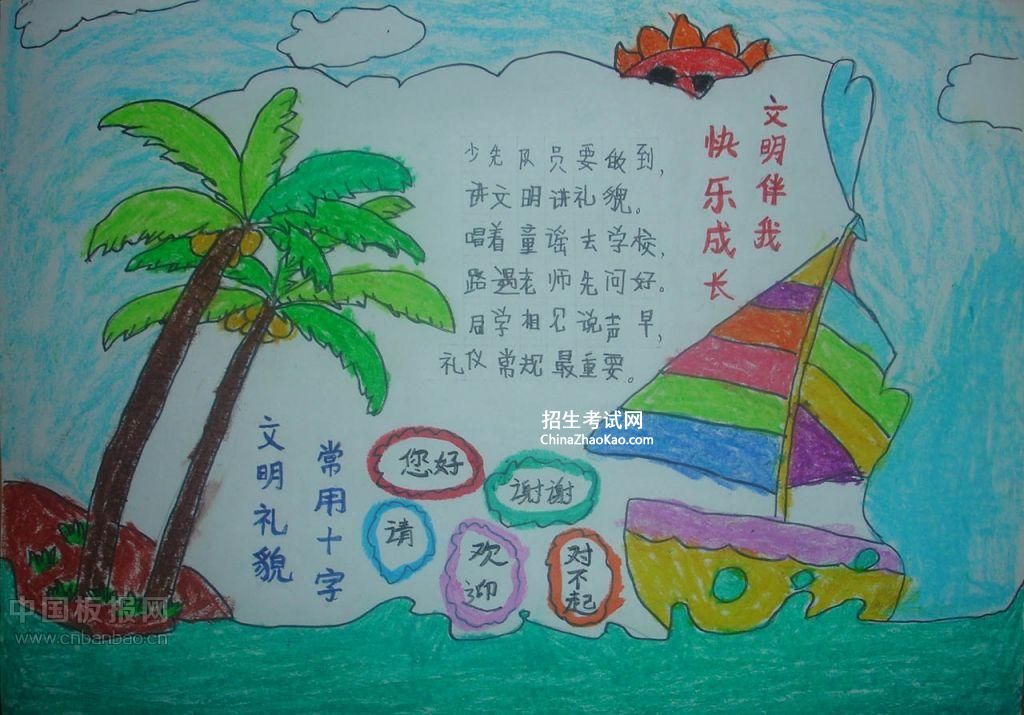 文明伴我
快乐成长
少先队员要做到，
讲文明讲礼貌。
唱着童谣去学校，
路遇老师先问好。
同学相见说声早，
礼仪常规最重要。
文明礼貌
常用十字
您好
谢谢
请
欢迎
对不起
招生考试网
ChinaZhaoKao.com
中国板报网
www.cnbanbao.cn